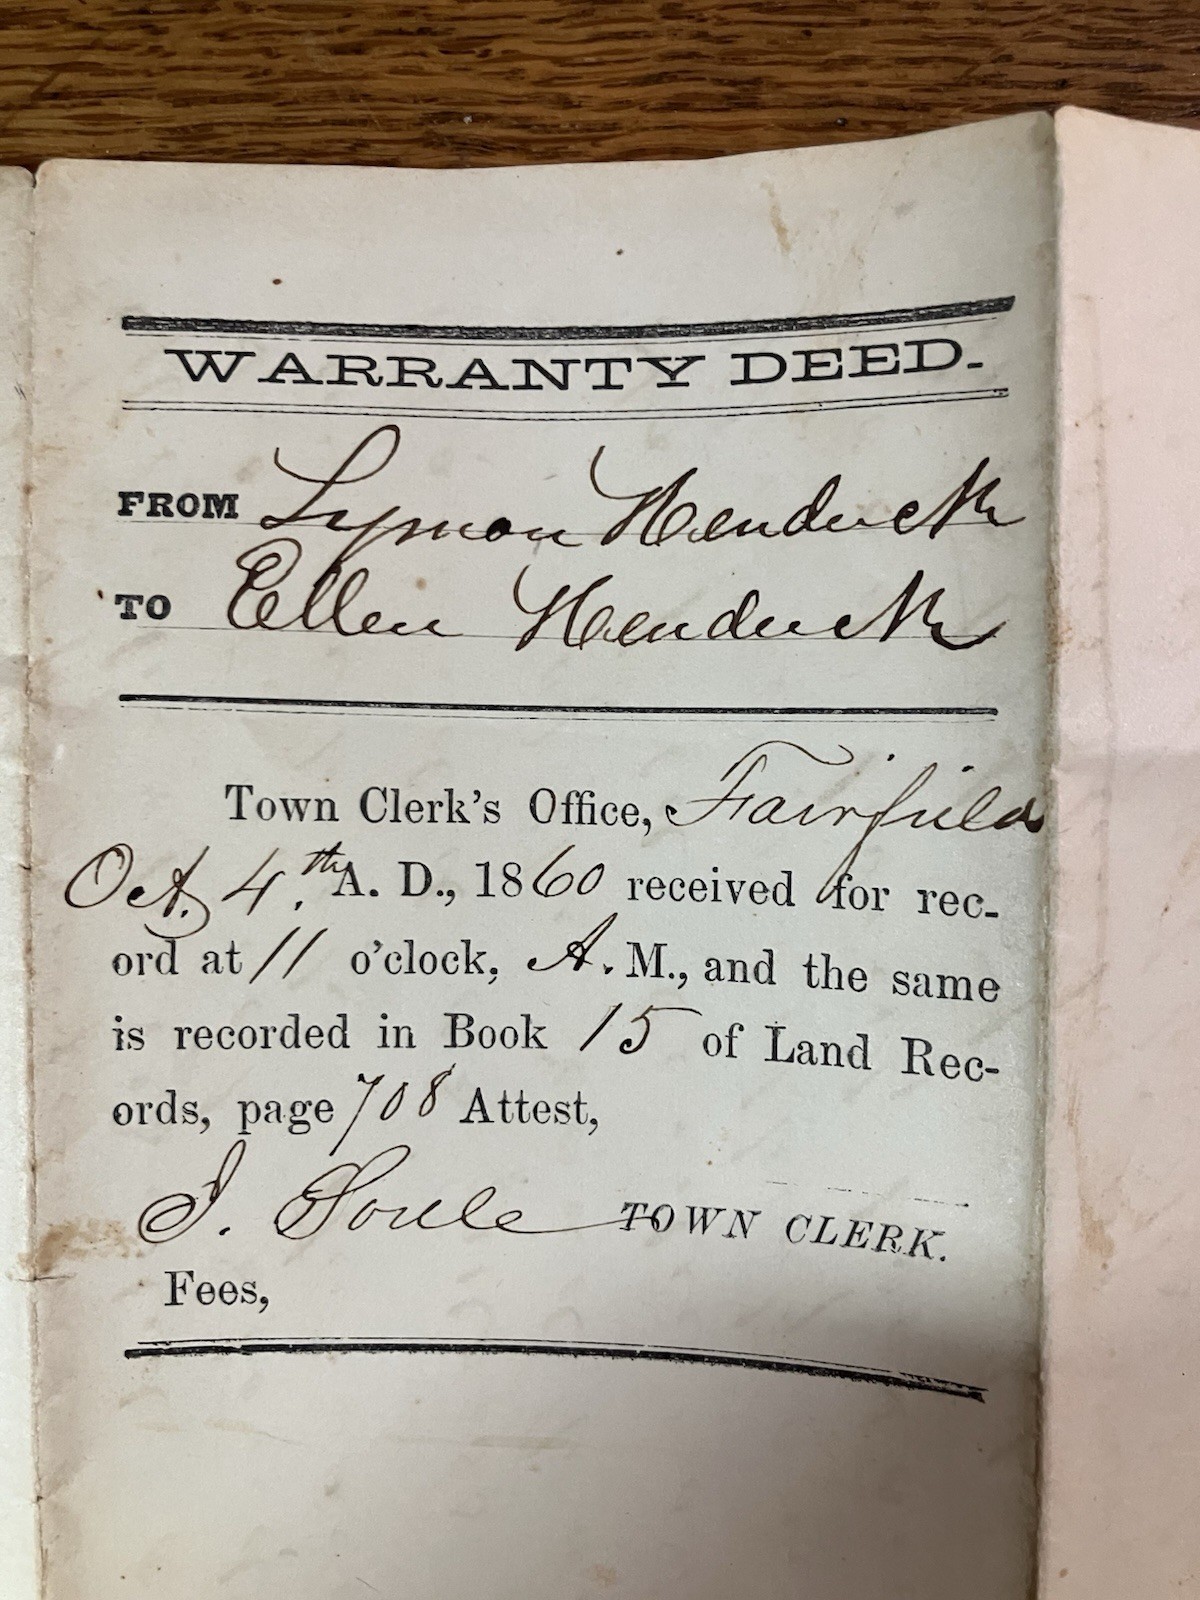 WARRANTY DEED.
FROM Lyman Hendrick
TO Ellen Hendrick
Town Clerk's Office, Fairfield
Oct. 4.th A. D., 1860 received for rec-
ord at 11 o'clock, A. M., and the same
is recorded in Book 15 of Land Rec-
ords, page 708 Attest,
J. Soule TOWN CLERK.
Fees,